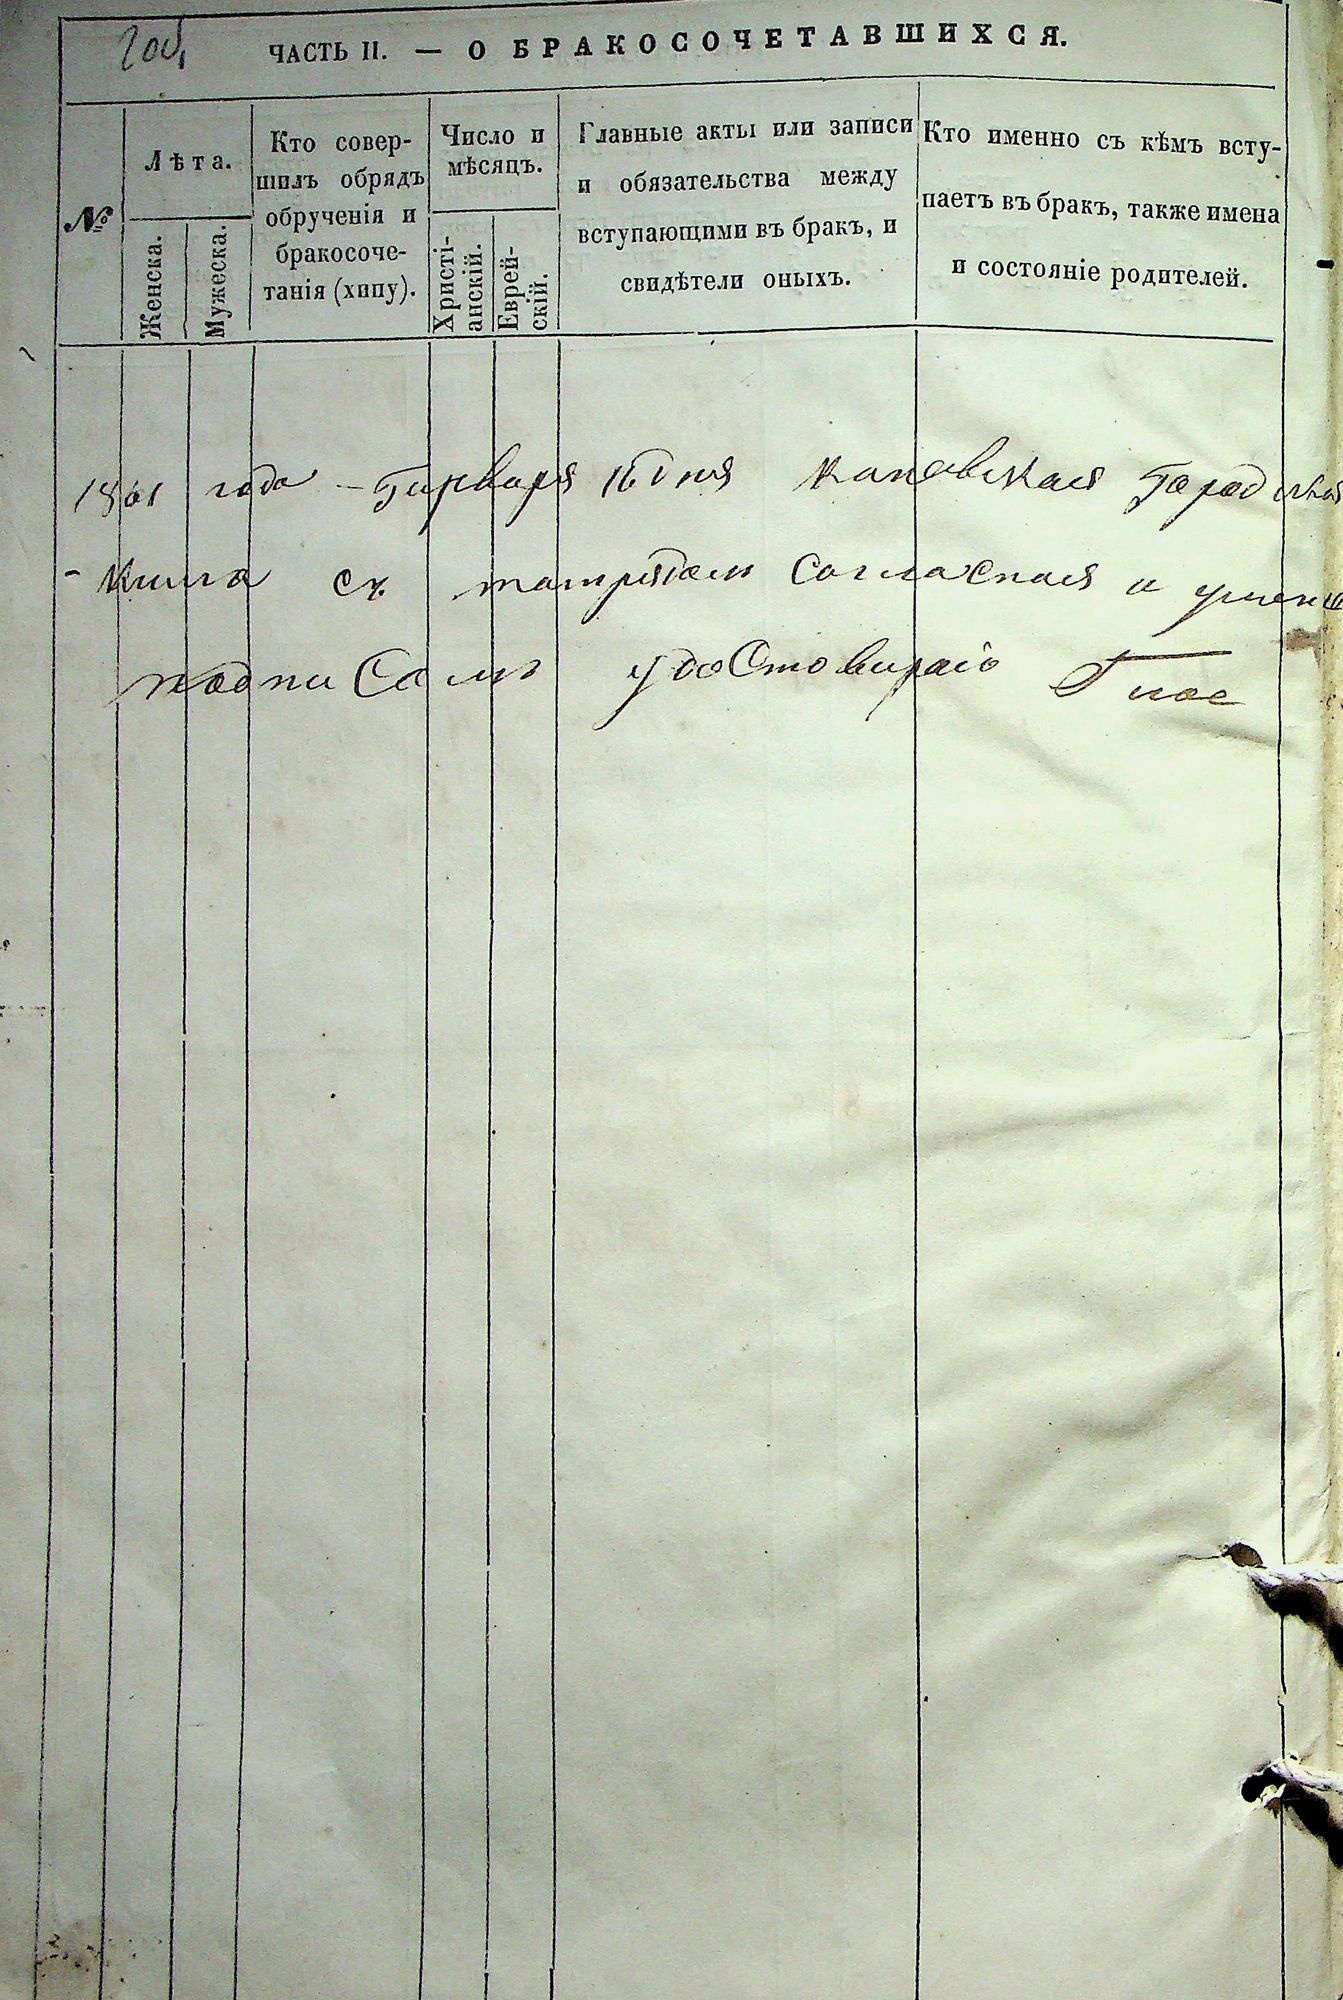 ЧАСТЬ II. — О БРАКОСОЧЕТАВШИХСЯ.
№
Лѣта.
Женска.
Мужеска.
Кто совер-
шилъ обрядъ
обрученія и
бракосоче-
танія (хипу).
Число и
мѣсяцъ.
Христі-
анскій.
Еврей-
скій.
Главные акты или записи
и обязательства между
вступающими въ бракъ, и
свидѣтели оныхъ.
Кто именно съ кѣмъ всту-
паетъ въ бракъ, также имена
и состояніе родителей.
1861 года 16 дня Каневская
Книга съ согласная и
удостовираю